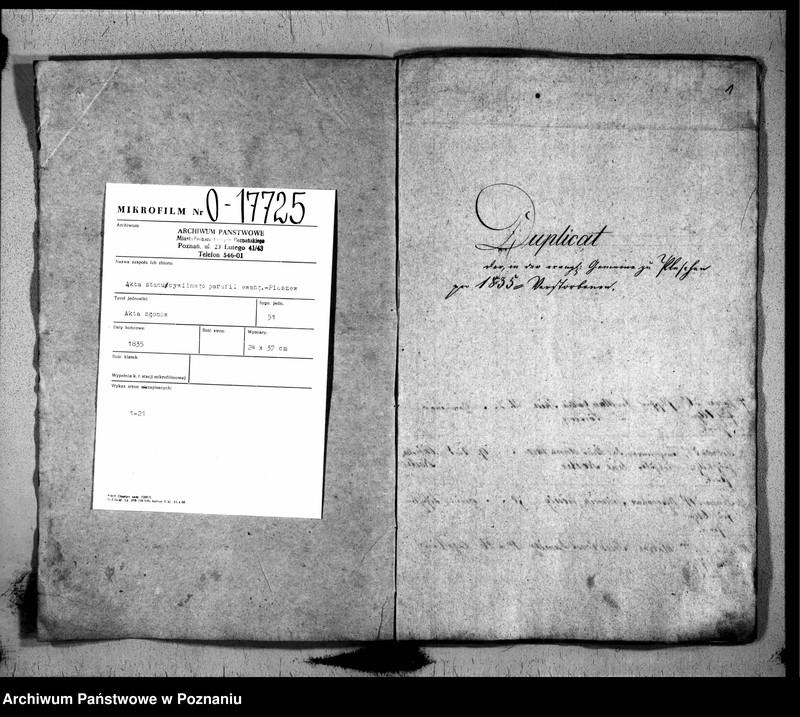 MIKROFILM Nr O-17725
Archiwum:
ARCHIWUM PAŃSTWOWE
Miasta Poznania i Woj. Poznańskiego
Poznań, ul. 23 Lutego 41/43
Telefon 546-01
Nazwa zespołu lub zbioru:
Akta stanu cywilnego parafii ewang.-Pleszew
Tytuł jednostki:
Sygn. jedn.
Akta zgonów
51
Daty końcowe:
Ilość stron:
Wymiary:
1835
24 x 37 cm
Ilość klatek:
Wypełnia k. t. stacji mikrofilmowej
Wykaz stron niezapisanych:
1-21
1
Duplicat
der, in der evangl. Gemeine zu Pleschen
pro 1835 Verstorbenen.
Archiwum Państwowe w Poznaniu